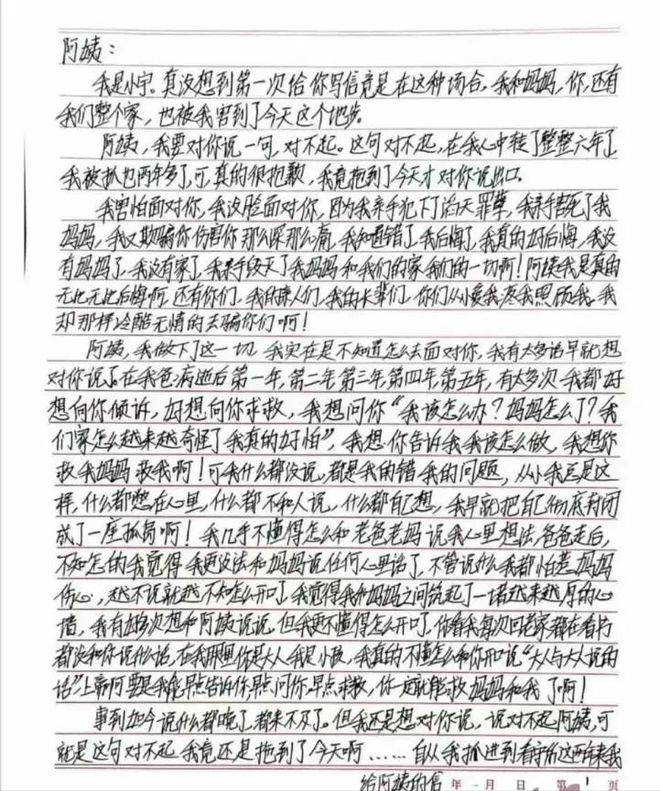 阿姨：
我是小宁。真没想到第一次给你写信竟是在这种场合。我和妈妈，你，还有
我们整个家，也被我害到了今天这个地步。
阿姨，我要对你说一句，对不起。这句对不起，在我心中转了整整六年了
我被抓也两年多了，可，真的很抱歉，我竟拖到了今天才对你说出口。
我害怕面对你，我没脸面对你，因为我亲手犯下了滔天罪孽，我亲手害死了我
妈妈，我又欺骗你伤害你那么深那么痛，我知道错了我后悔了，我真的好后悔，我没
有妈妈了，我没有家了，我亲手毁灭了我妈妈和我们的家我们的一切啊！阿姨我是真的
无比无比后悔啊，还有你们，我的亲人们，我的长辈们，你们从小爱我疼我照顾我，我
却那样冷酷无情的去骗你们啊！
阿姨，我做下了这一切，我实在是不知道怎么去面对你，我有太多话早就想
对你说了，在我爸病逝后第一年，第二年第三年第四年第五年，有太多次我都好
想向你倾诉，好想向你求救，我想问你“我该怎么办？妈妈怎么了？我
们家怎么越来越奇怪了我真的好怕”，我想你告诉我我该怎么做，我想你
救我妈妈救我啊！可我什么都没说，都是我的错我的问题，从小我总是这
样，什么都憋在心里，什么都不和人说，什么都自己想，我早就把自己彻底封闭
成了一座孤岛啊！我几乎不懂得怎么和老爸老妈说我心里想法，爸爸走后，
不知怎的我觉得我更没法和妈妈说任何心里话了，不管说什么我都怕惹妈妈
伤心，越不说就越不知怎么开口了，我觉得我和妈妈之间筑起了一堵越来越厚的心
墙，我有好多次想和阿姨说说，但我更不懂得怎么开口了，你看我每次回老家都在看书
都没和你说什么话，在我眼里你是大人我是小孩，我真的不懂怎么和你开口说“大人与大人说的
话”上啊阿要是我能早点告诉你早点问你，早点求救，你一定就能救妈妈和我了啊！
事到如今说什么都晚了，都来不及了。但我还是想对你说，说对不起阿姨，可
就是这句对不起我竟还是拖到了今天啊……自从我抓进到看守所这两年来我
给阿姨的信 年 一月 日 第 1 页